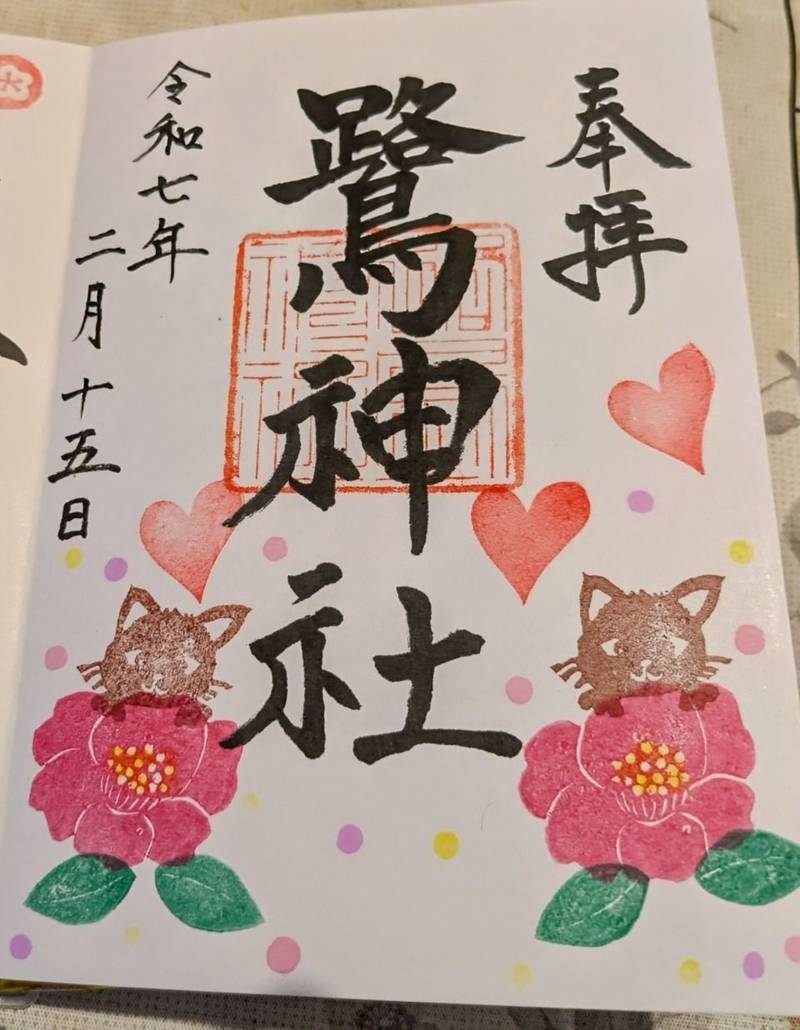 奉拝
鷺神社
令和七年
二月十五日